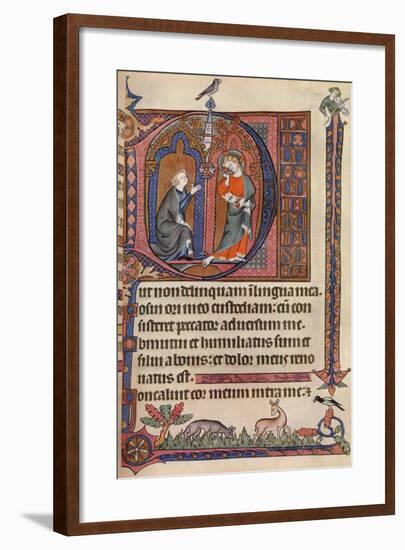 ut non delinquam in lingua mea.
osui ori meo custodiam: cũ con
sisteret peccator aduersum me.
bmutui et humiliatus sum et
silui a bonis: et dolor meus reno
uatus est.
oncaluit cor meum intra me: &